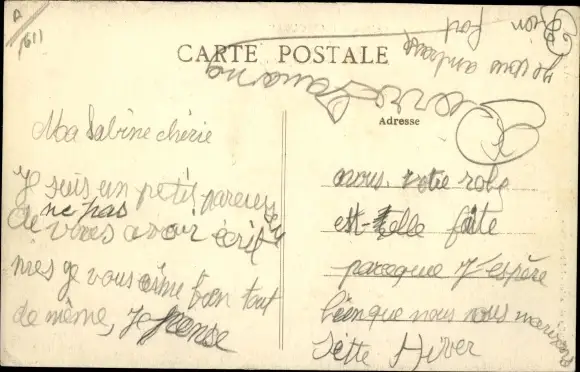 A
1611
CARTE POSTALE
Adresse
Ma Sabine chérie
Je suis un petis pareuseu
ne pas
de vous avoir écrit
mes je vous aime bien tout
de même, Je pense
avous. votre robe
est-elle faite
parceque J'espère
bienque nous nous marirons
Sette Hiver
Je vous embrasse
fort
Pierre